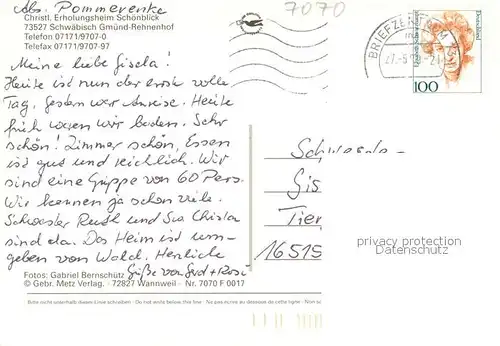 Abs. Pommerenke
7070
Christl. Erholungsheim Schönblick
73527 Schwäbisch Gmünd-Rehnenhof
Telefon 07171/9707-0
Telefax 07171/9707-97
BRIEFZENTRUM
Deutschland
100
Meine liebe Gisela!
Heute ist nun der erste volle
Tag. Gestern war Anreise. Heute
früh waren wir baden. Sehr
schön! Zimmer schön, Essen
ist gut und reichlich. Wir
sind eine Gruppe von 60 Pers.
Wir kennen ja schon viele.
Schwester Ruth und Sr. Christa
sind da. Das Heim ist um-
geben von Wald. Herzliche
Grüße von Gerd + Rosi
Gis
Tier
16515
privacy protection
Datenschutz
Fotos: Gabriel Bernschütz
© Gebr. Metz Verlag · 72827 Wannweil · Nr. 7070 F 0017
Bitte nicht unterhalb dieser Linie schreiben · Do not write below this line · Ne rien écrire au dessous de cette ligne · Non s